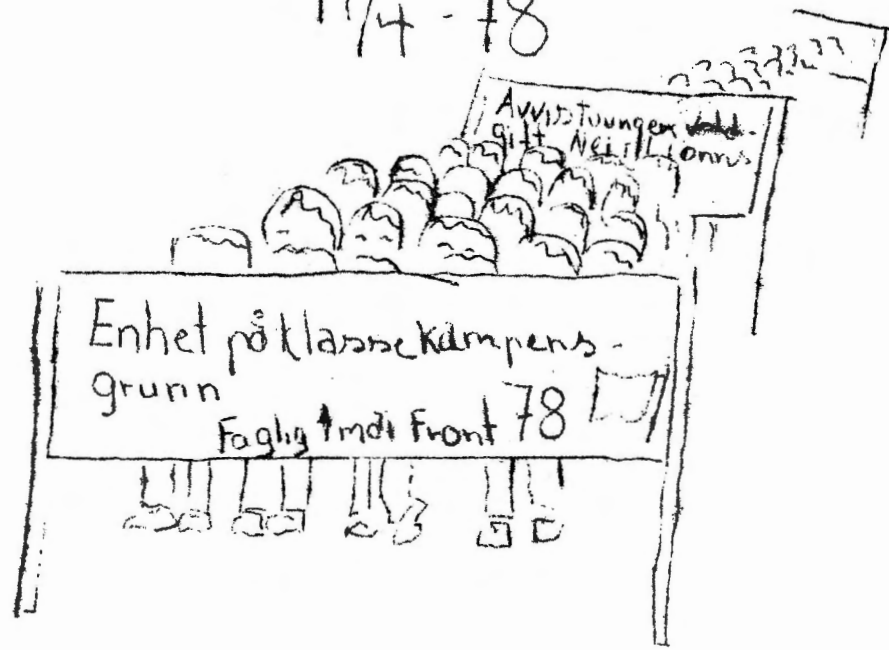 /4 - 78
Avvis tvungen vold-
gift Nei til
Enhet på klassekampens
grunn
Faglig 1 mai Front 78